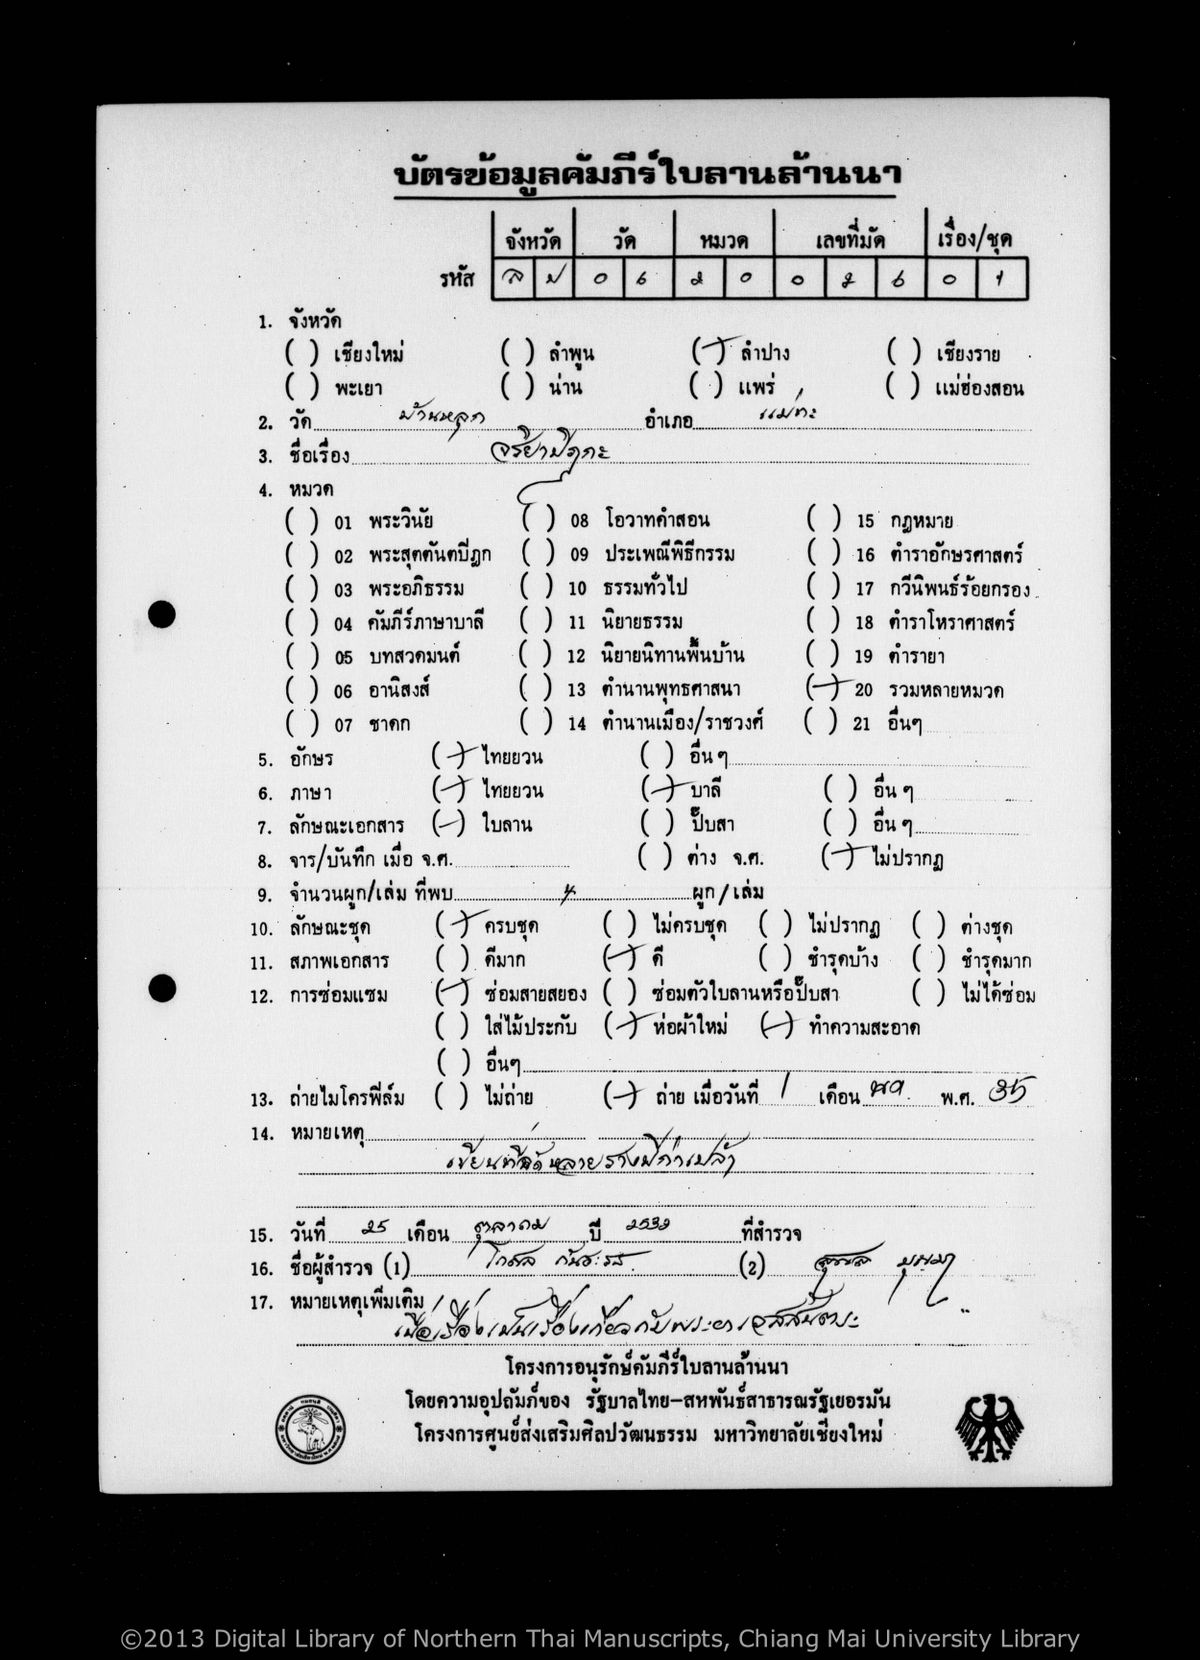 บัตรข้อมูลคัมภีร์ใบลานล้านนา
จังหวัด วัด หมวด เลขที่มัด เรื่อง/ชุด
รหัส ล ป 0 6 2 0 0 2 6 0 1
1. จังหวัด
( ) เชียงใหม่ ( ) ลำพูน (/) ลำปาง ( ) เชียงราย
( ) พะเยา ( ) น่าน ( ) แพร่ ( ) แม่ฮ่องสอน
2. วัด บ้านหลุก อำเภอ แม่ทะ
3. ชื่อเรื่อง จริยาปิฎกะ
4. หมวด
( ) 01 พระวินัย ( ) 08 โอวาทคำสอน ( ) 15 กฎหมาย
( ) 02 พระสุตตันตปิฎก ( ) 09 ประเพณีพิธีกรรม ( ) 16 ตำราอักษรศาสตร์
( ) 03 พระอภิธรรม ( ) 10 ธรรมทั่วไป ( ) 17 กวีนิพนธ์ร้อยกรอง
( ) 04 คัมภีร์ภาษาบาลี ( ) 11 นิยายธรรม ( ) 18 ตำราโหราศาสตร์
( ) 05 บทสวดมนต์ ( ) 12 นิยายนิทานพื้นบ้าน ( ) 19 ตำรายา
( ) 06 อานิสงส์ ( ) 13 ตำนานพุทธศาสนา (/) 20 รวมหลายหมวด
( ) 07 ชาดก ( ) 14 ตำนานเมือง/ราชวงศ์ ( ) 21 อื่นๆ
5. อักษร (/) ไทยยวน ( ) อื่น ๆ
6. ภาษา (/) ไทยยวน (/) บาลี ( ) อื่น ๆ
7. ลักษณะเอกสาร (/) ใบลาน ( ) ปั๊บสา ( ) อื่น ๆ
8. จาร/บันทึก เมื่อ จ.ศ. ( ) ต่าง จ.ศ. (/) ไม่ปรากฏ
9. จำนวนผูก/เล่ม ที่พบ 4 ผูก/เล่ม
10. ลักษณะชุด (/) ครบชุด ( ) ไม่ครบชุด ( ) ไม่ปรากฏ ( ) ต่างชุด
11. สภาพเอกสาร ( ) ดีมาก (/) ดี ( ) ชำรุดบ้าง ( ) ชำรุดมาก
12. การซ่อมแซม (/) ซ่อมสายสยอง ( ) ซ่อมตัวใบลานหรือปั๊บสา ( ) ไม่ได้ซ่อม
( ) ใส่ไม้ประกับ (/) ห่อผ้าใหม่ (/) ทำความสะอาด
( ) อื่นๆ
13. ถ่ายไมโครฟิล์ม ( ) ไม่ถ่าย (/) ถ่าย เมื่อวันที่ 1 เดือน พ.ศ. 35
14. หมายเหตุ
15. วันที่ 25 เดือน ตุลาคม ปี 2532 ที่สำรวจ
16. ชื่อผู้สำรวจ (1) โกศล (2)
17. หมายเหตุเพิ่มเติม
เนื้อเรื่องเป็นเรื่องเกี่ยวกับพระยาเวสสันตระ
โครงการอนุรักษ์คัมภีร์ใบลานล้านนา
โดยความอุปถัมภ์ของ รัฐบาลไทย-สหพันธ์สาธารณรัฐเยอรมัน
โครงการศูนย์ส่งเสริมศิลปวัฒนธรรม มหาวิทยาลัยเชียงใหม่
©2013 Digital Library of Northern Thai Manuscripts, Chiang Mai University Library